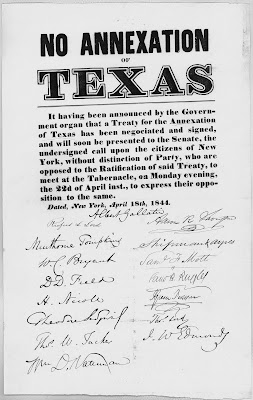 NO ANNEXATION
OF
TEXAS
It having been announced by the Govern-
ment organ that a Treaty for the Annexation
of Texas has been negotiated and signed,
and will soon be presented to the Senate, the
undersigned call upon the citizens of New
York, without distinction of Party, who are
opposed to the Ratification of said Treaty, to
meet at the Tabernacle, on Monday evening,
the 22d of April inst., to express their oppo-
sition to the same.
Dated, New York, April 18th, 1844.
Albert Gallatin
W C Bryant
D D Field
H. Nicoll
Theodore Sedgwick
Tho. W. Tucker
J. W. Edmonds